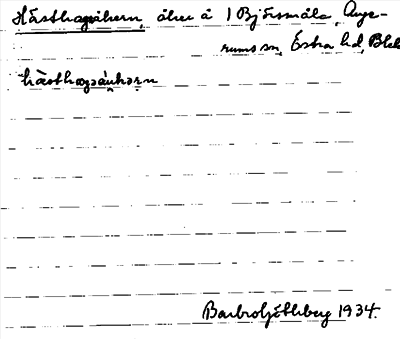 Hästhagaåkern, åker å 1 Björsmåla, Augerums sn, Östra hd, Blek
hästhagaåkərn
Barbro Göthberg 1934.